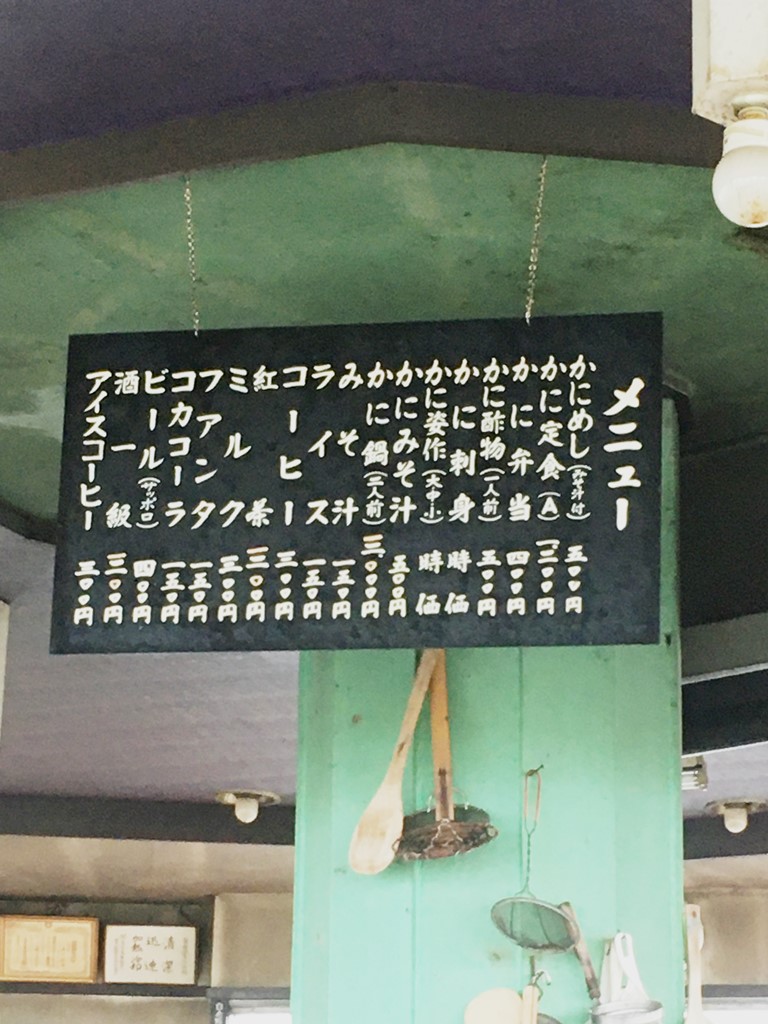 メニュー
かにめし(みそ汁付) 五〇〇円
かに定食(A) 一三〇〇円
かに弁当 四〇〇円
かに酢物(一人前) 五〇〇円
かに刺身 時価
かに姿作(大中小) 時価
かにみそ汁 五〇〇円
かに鍋(二人前) 三、〇〇〇円
みそ汁 一五〇円
ライス 一五〇円
コーヒー 三〇〇円
紅茶 三〇〇円
ミルク 三〇〇円
ファンタ 一五〇円
コカコーラ 一五〇円
ビール(サッポロ) 四〇〇円
酒一級 三〇〇円
アイスコーヒー 三〇〇円